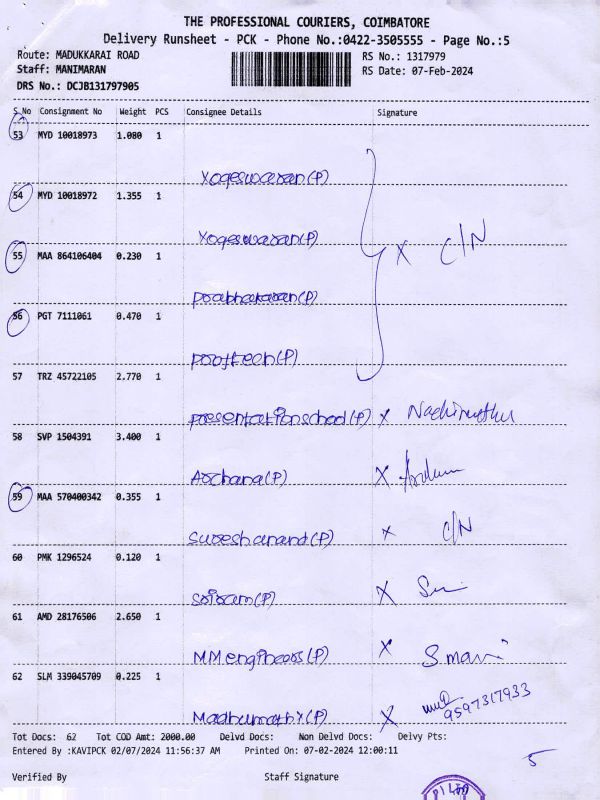 THE PROFESSIONAL COURIERS, COIMBATORE
Delivery Runsheet - PCK - Phone No.:0422-3505555 - Page No.:5
Route: MADUKKARAI ROAD RS No.: 1317979
Staff: MANIMARAN RS Date: 07-Feb-2024
DRS No.: DCJB131797905
S.No Consignment No Weight PCS Consignee Details Signature
53 MYD 10018973 1.080 1
Yogeswaran(P)
54 MYD 10018972 1.355 1
Yogeswaran(P)
55 MAA 864106404 0.230 1 X C/N
Prabhakaran(P)
56 PGT 7111061 0.470 1
(P)
57 TRZ 45722105 2.770 1
Presentation school(P) X Nachimuthu
58 SVP 1504391 3.400 1
Archana(P) X
59 MAA 570400342 0.355 1
Sureshanand(P) X C/N
60 PMK 1296524 0.120 1
Sriram(P) X
61 AMD 28176506 2.650 1
MM engineers(P) X S mani
62 SLM 339045709 0.225 1
Madhumathi(P) X 9597317933
Tot Docs: 62 Tot COD Amt: 2000.00 Delvd Docs: Non Delvd Docs: Delvy Pts:
Entered By :KAVIPCK 02/07/2024 11:56:37 AM Printed On: 07-02-2024 12:00:11
5
Verified By Staff Signature